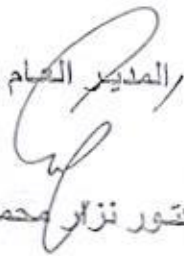 المدير العام
تور نزار محم